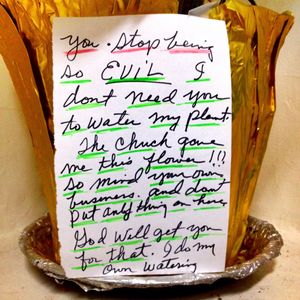 you. Stop being
so EViL I
dont need you
to water my plant.
The Chuck gave
me this flower!!?
So mind your own
business. and dont
put anything on here
God will get you
for that. I do my
own watering